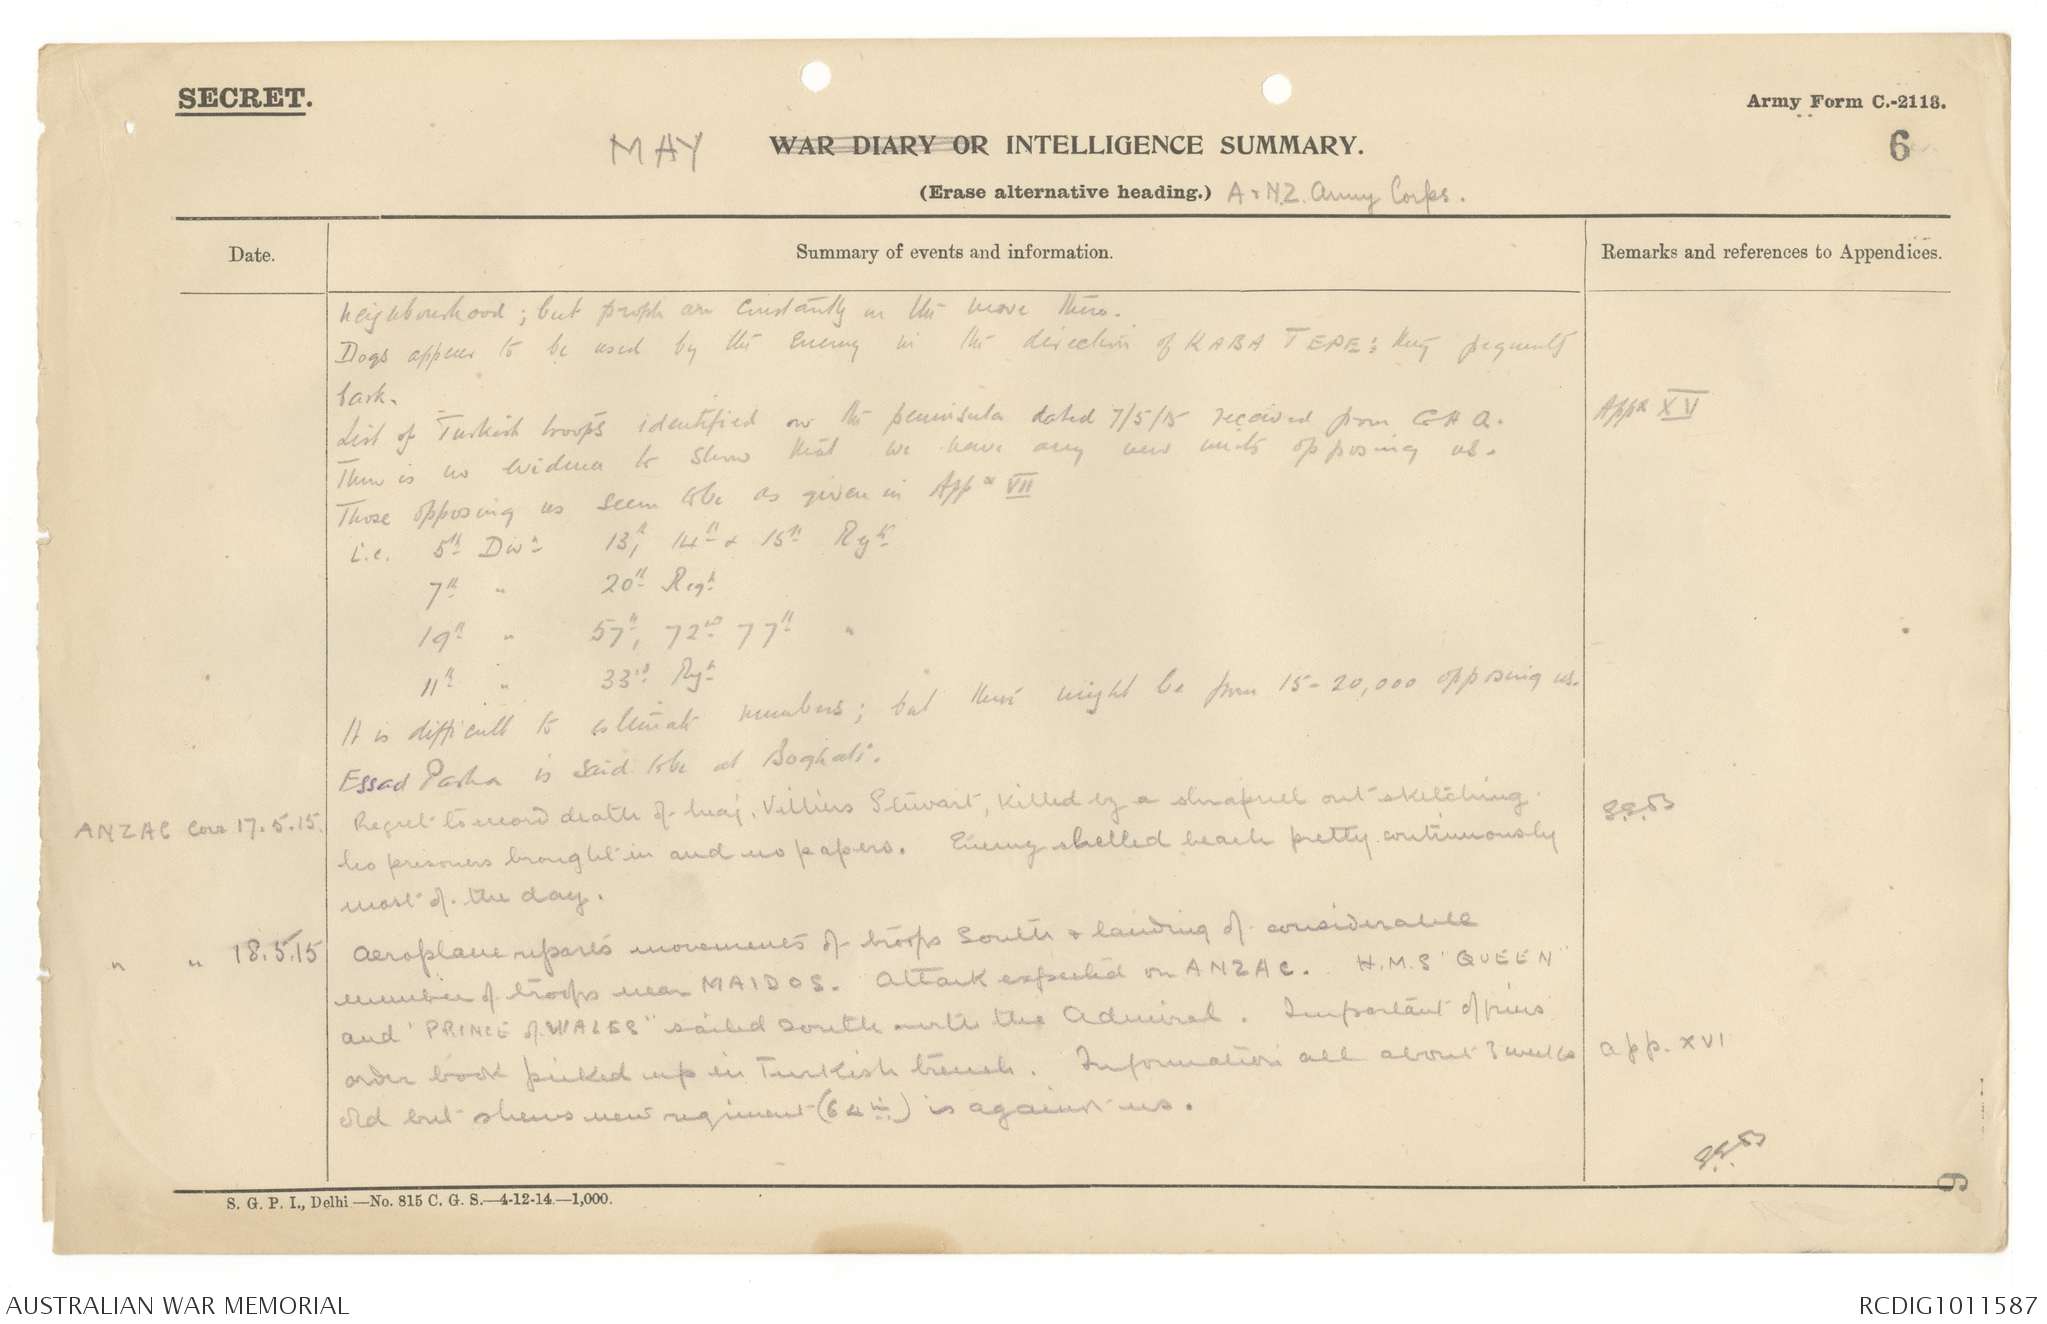 SECRET.
Army Form C.-2118.
MAY
WAR DIARY OR INTELLIGENCE SUMMARY.
6
(Erase alternative heading.) A & N.Z. Army Corps.
Date.
Summary of events and information.
Remarks and references to Appendices.
neighbourhood; but people are constantly on the move there.
Dogs appear to be used by the Enemy in the direction of KABA TEPE; they frequently
bark.
List of Turkish troops identified on the peninsula dated 7/5/15 received from GHQ.
Appx XV
There is no evidence to show that we have any new units opposing us.
Those opposing us seem to be as given in Appx VII
i.e. 5th Divn 13th, 14th & 15th Regts
7th " 20th Regt
19th " 57th, 72nd 77th "
11th " 33rd Regt
It is difficult to estimate numbers; but there might be from 15-20,000 opposing us.
Essad Pasha is said to be at Boghali.
ANZAC Cove 17.5.15.
Regret to record death of Maj. Villiers Stuart, killed by a shrapnel out sketching.
No prisoners brought in and no papers. Enemy shelled beach pretty continuously
most of the day.
" " 18.5.15
Aeroplane reports movements of troops South & landing of considerable
number of troops near MAIDOS. Attack expected on ANZAC. H.M.S "QUEEN"
and "PRINCE of WALES" sailed south with the Admiral. Important officers
order book picked up in Turkish trench. Information all about 3 weeks
app. XVI
old but shews new regiment (64th) is against us.
9
S. G. P. I., Delhi—No. 815 C. G. S.—4-12-14—1,000.
AUSTRALIAN WAR MEMORIAL
RCDIG1011587